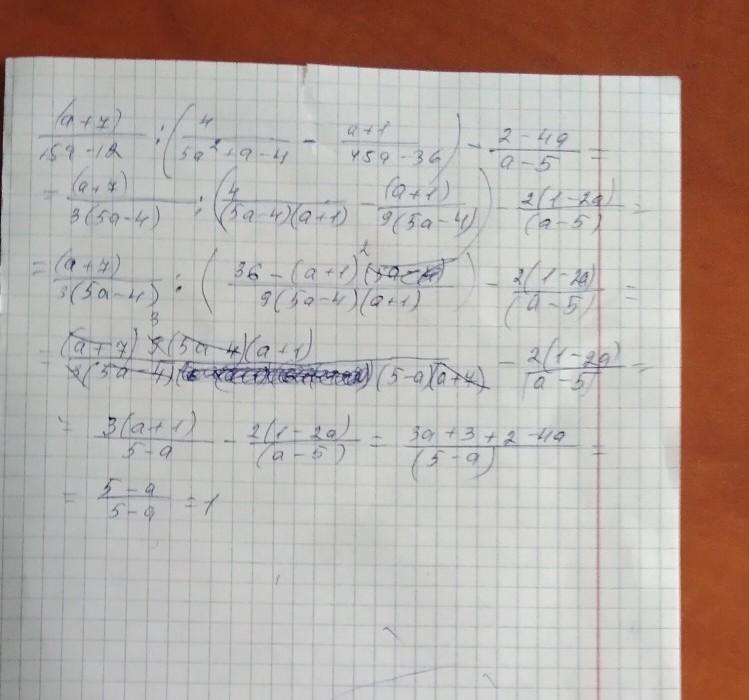 (a+7)/(15a-12) : (4/(5a²+a-4) - (a+1)/(45a-36)) - (2-4a)/(a-5) =
= (a+7)/(3(5a-4)) : (4/((5a-4)(a+1)) - (a+1)/(9(5a-4))) - 2(1-2a)/(a-5) =
= (a+7)/(3(5a-4)) : ((36-(a+1)²)/(9(5a-4)(a+1))) - 2(1-2a)/(a-5) =
= (a+7) 9 3 (5a-4)(a+1)/(3(5a-4)(5-a)(a+7)) - 2(1-2a)/(a-5) =
= 3(a+1)/(5-a) - 2(1-2a)/(a-5) = (3a+3+2-4a)/(5-a) =
= (5-a)/(5-a) = 1